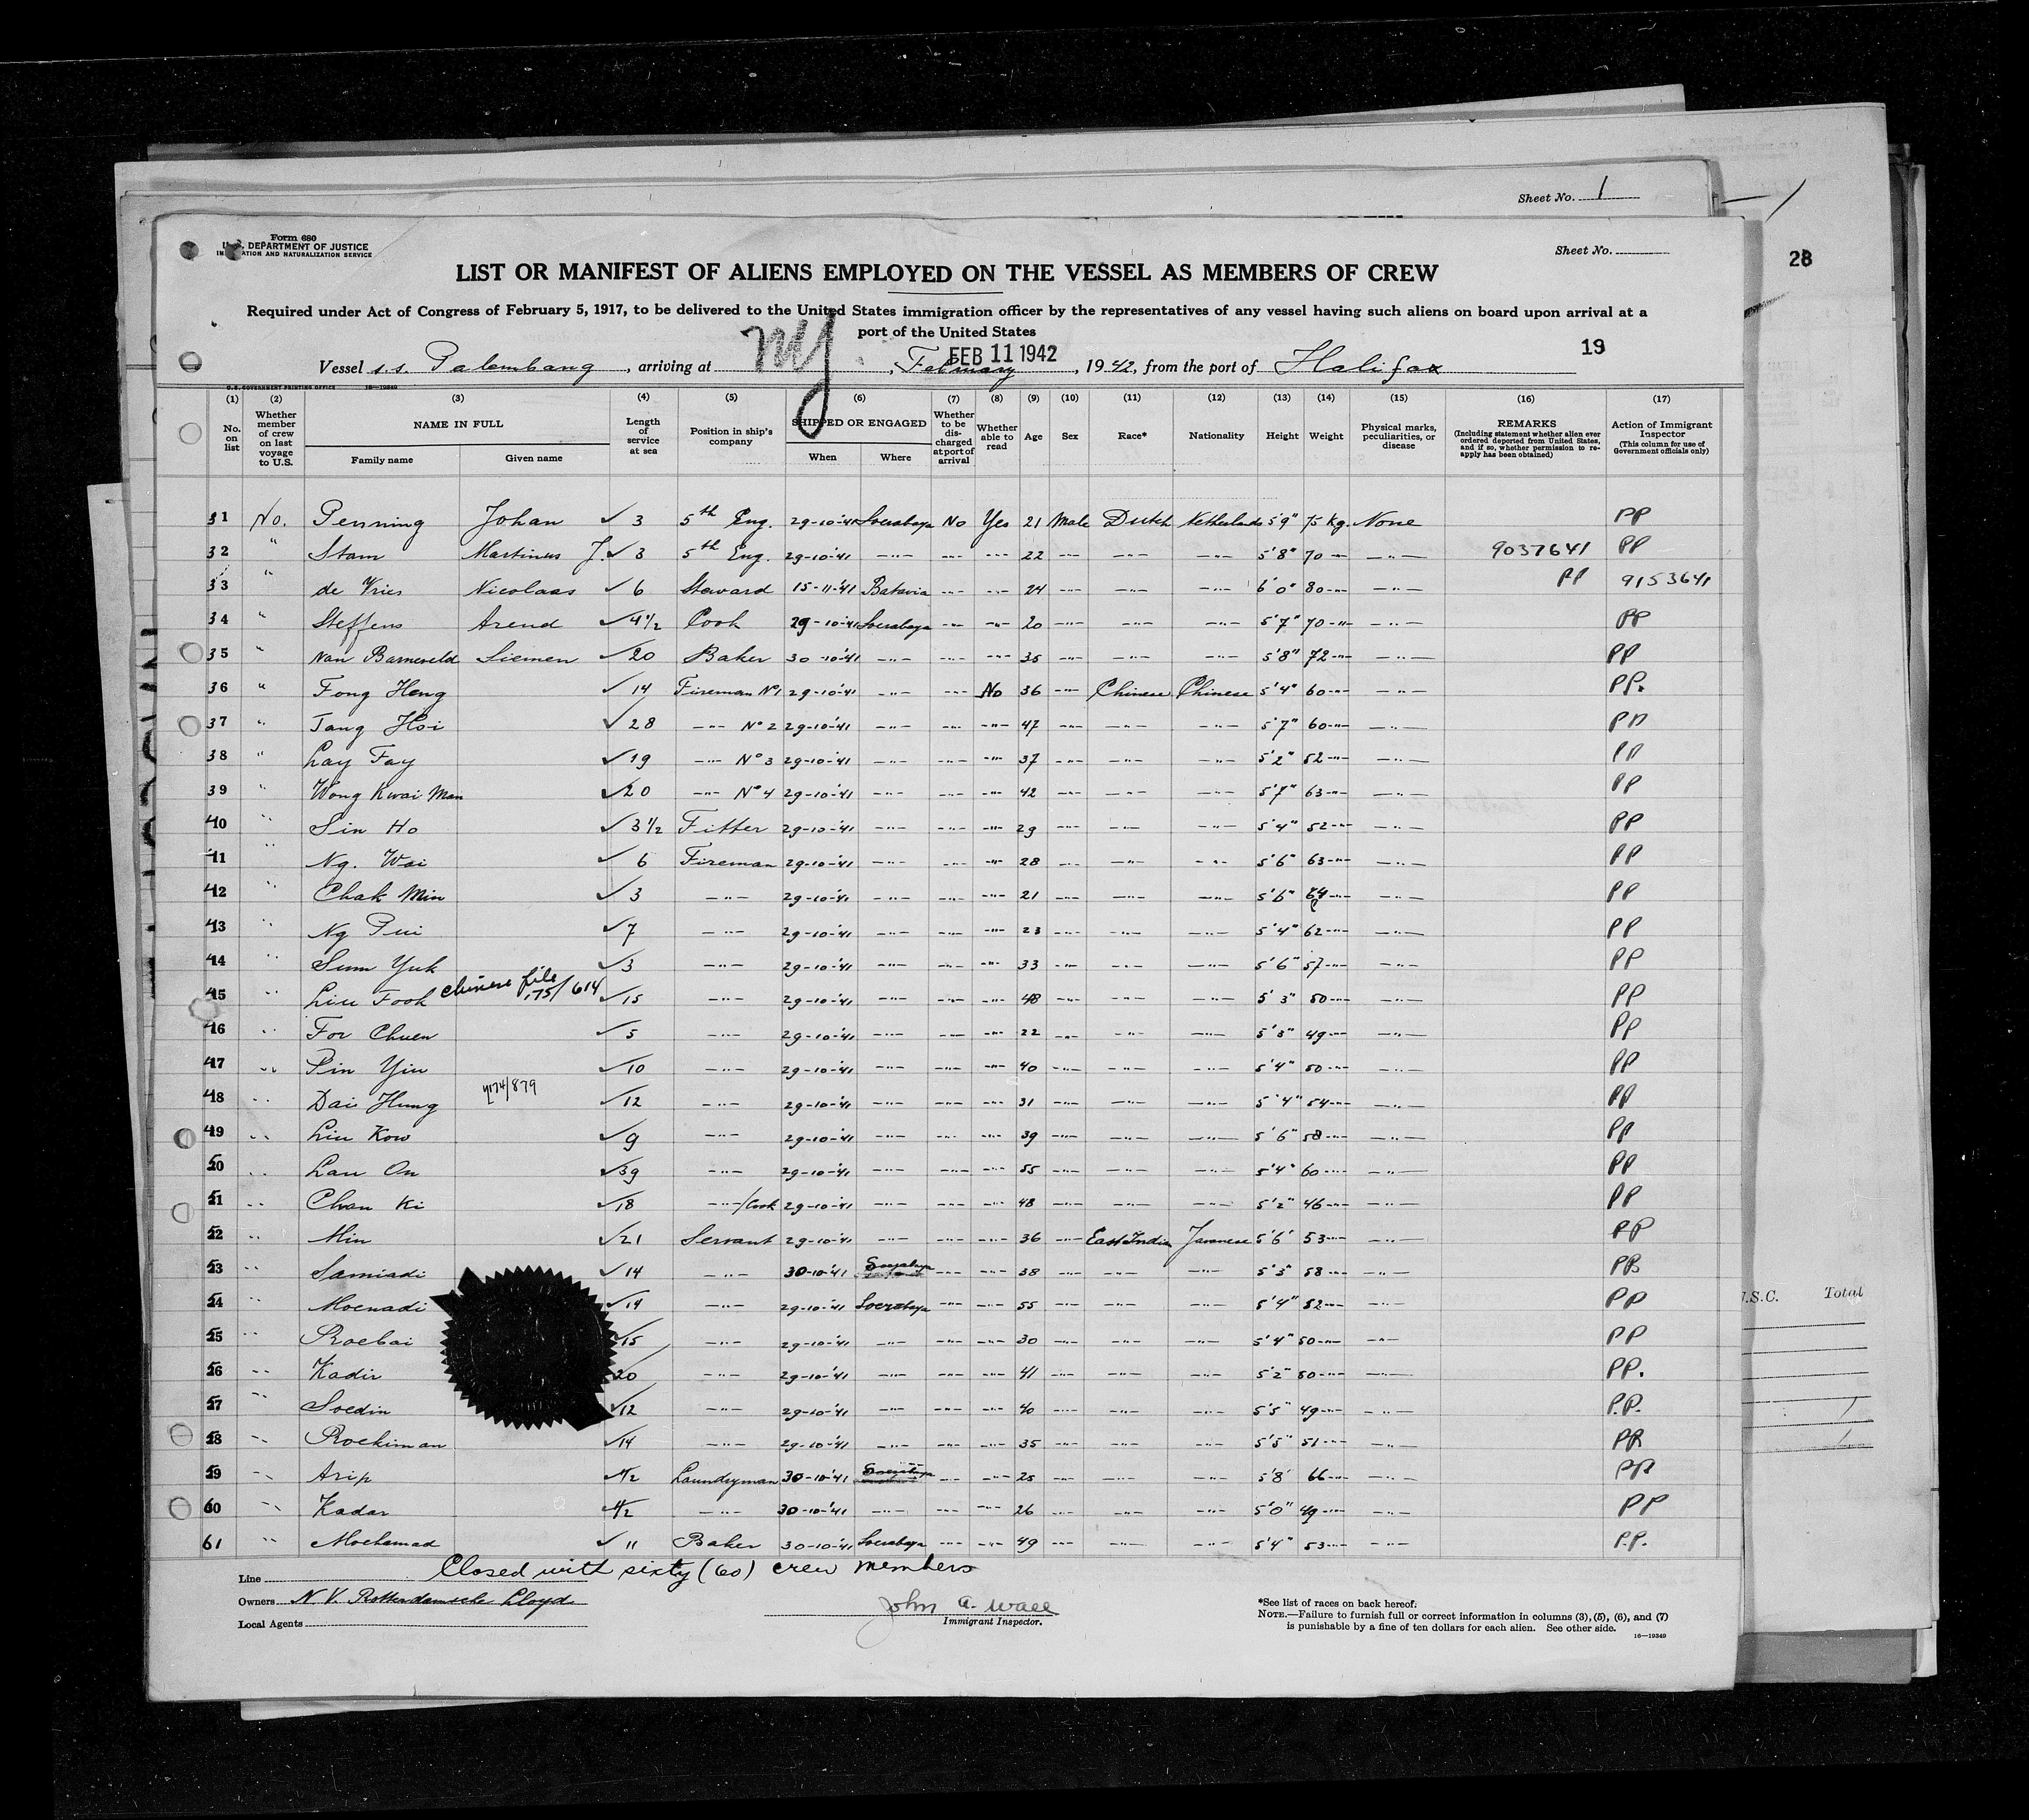 Sheet No. 1
Form 680
U. S. DEPARTMENT OF JUSTICE
IMMIGRATION AND NATURALIZATION SERVICE
Sheet No.
28
LIST OR MANIFEST OF ALIENS EMPLOYED ON THE VESSEL AS MEMBERS OF CREW
Required under Act of Congress of February 5, 1917, to be delivered to the United States immigration officer by the representatives of any vessel having such aliens on board upon arrival at a
port of the United States
19
Vessel s.s. Palembang, arriving at NY, February FEB 11 1942, 1942, from the port of Halifax
U. S. GOVERNMENT PRINTING OFFICE 16—19349
(1) (2) (3) (4) (5) (6) (7) (8) (9) (10) (11) (12) (13) (14) (15) (16) (17)
No. on list
Whether member of crew on last voyage to U.S.
NAME IN FULL
Family name Given name
Length of service at sea
Position in ship's company
SHIPPED OR ENGAGED
When Where
Whether to be discharged at port of arrival
Whether able to read
Age
Sex
Race*
Nationality
Height
Weight
Physical marks, peculiarities, or disease
REMARKS
(Including statement whether alien ever ordered deported from United States, and if so, whether permission to re-apply has been obtained)
Action of Immigrant Inspector
(This column for use of Government officials only)
31 No. Penning Johan ✓ 3 5th Eng. 29-10-'41 Soerabaya No Yes 21 Male Dutch Netherlands 5'9" 75 Kg. None PP
32 " Stam Martinus J. ✓ 3 5th Eng. 29-10-'41 —"— —"— —"— 22 —"— —"— —"— 5'8" 70 —"— —"— 9037641 PP
33 " de Vries Nicolaas ✓ 6 Steward 15-11-'41 Batavia —"— —"— 24 —"— —"— —"— 6'0" 80 —"— —"— PP 9153641
34 " Steffens Arend ✓ 4½ Cook 29-10-'41 Soerabaya —"— —"— 20 —"— —"— —"— 5'7" 70 —"— —"— PP
35 " van Barneveld Siemen ✓ 20 Baker 30-10-'41 —"— —"— —"— 35 —"— —"— —"— 5'8" 72 —"— —"— PP
36 " Fong Heng ✓ 14 Fireman No 1 29-10-'41 —"— —"— No 36 —"— Chinese Chinese 5'4" 60 —"— —"— PP.
37 " Tang Hoi ✓ 28 —"— No 2 29-10-'41 —"— —"— —"— 47 —"— —"— —"— 5'7" 60 —"— —"— PP
38 " Lay Fay ✓ 19 —"— No 3 29-10-'41 —"— —"— —"— 37 —"— —"— —"— 5'2" 52 —"— —"— PP
39 " Wong Kwai Man ✓ 20 —"— No 4 29-10-'41 —"— —"— —"— 42 —"— —"— —"— 5'7" 63 —"— —"— PP
40 " Sin Ho ✓ 3½ Fitter 29-10-'41 —"— —"— —"— 29 —"— —"— —"— 5'4" 52 —"— —"— PP
41 " Ng. Wai ✓ 6 Fireman 29-10-'41 —"— —"— —"— 28 —"— —"— —"— 5'6" 63 —"— —"— PP
42 " Chak Min ✓ 3 —"— 29-10-'41 —"— —"— —"— 21 —"— —"— —"— 5'6" 64 —"— —"— PP
43 " Ng Pui ✓ 7 —"— 29-10-'41 —"— —"— —"— 23 —"— —"— —"— 5'4" 62 —"— —"— PP
44 " Sum Yuk ✓ 3 —"— 29-10-'41 —"— —"— —"— 33 —"— —"— —"— 5'6" 57 —"— —"— PP
45 " Liu Fook chinese file 175/614 ✓ 15 —"— 29-10-'41 —"— —"— —"— 48 —"— —"— —"— 5'3" 50 —"— —"— PP
46 " For Chuen ✓ 5 —"— 29-10-'41 —"— —"— —"— 22 —"— —"— —"— 5'3" 49 —"— —"— PP
47 " Pin Yiu ✓ 10 —"— 29-10-'41 —"— —"— —"— 40 —"— —"— —"— 5'4" 50 —"— —"— PP
48 " Dai Hung 174/879 ✓ 12 —"— 29-10-'41 —"— —"— —"— 31 —"— —"— —"— 5'4" 54 —"— —"— PP
49 " Liu Kow ✓ 9 —"— 29-10-'41 —"— —"— —"— 39 —"— —"— —"— 5'6" 58 —"— —"— PP
50 " Lau On ✓ 39 —"— 29-10-'41 —"— —"— —"— 55 —"— —"— —"— 5'4" 60 —"— —"— PP
51 " Chan Ki ✓ 18 —"—/Cook 29-10-'41 —"— —"— —"— 48 —"— —"— —"— 5'2" 46 —"— —"— PP
52 " Min ✓ 21 Servant 29-10-'41 —"— —"— —"— 36 —"— East Indian Javanese 5'6" 53 —"— —"— PP
53 " Samiadi ✓ 14 —"— 30-10-'41 Soerabaya —"— —"— 38 —"— —"— —"— 5'3" 58 —"— —"— PP
54 " Moenadi ✓ 14 —"— 29-10-'41 Soerabaya —"— —"— 55 —"— —"— —"— 5'4" 52 —"— —"— PP
55 " Roebai ✓ 15 —"— 29-10-'41 —"— —"— —"— 30 —"— —"— —"— 5'4" 50 —"— —"— PP
56 " Kadir 20 —"— 29-10-'41 —"— —"— —"— 41 —"— —"— —"— 5'2" 50 —"— —"— PP.
57 " Soedin ✓ 12 —"— 29-10-'41 —"— —"— —"— 40 —"— —"— —"— 5'5" 49 —"— —"— P.P.
58 " Roekiman ✓ 14 —"— 29-10-'41 —"— —"— —"— 35 —"— —"— —"— 5'5" 51 —"— —"— PP
59 " Arip ½ Laundryman 30-10-'41 —"— —"— 25 —"— —"— —"— 5'8" 66 —"— —"— PP
60 " Kadar ½ —"— 30-10-'41 —"— —"— —"— 26 —"— —"— —"— 5'0" 49 —"— —"— PP
61 " Mochamad ✓ 11 Baker 30-10-'41 Soerabaya —"— —"— 49 —"— —"— —"— 5'4" 53 —"— —"— P.P.
Closed with sixty (60) crew members
Line
Owners N.V. Rotterdamsche Lloyd.
Local Agents
John A. Wall
Immigrant Inspector.
*See list of races on back hereof.
NOTE.—Failure to furnish full or correct information in columns (3), (5), (6), and (7)
is punishable by a fine of ten dollars for each alien. See other side.
16—19349
U.S.C. Total